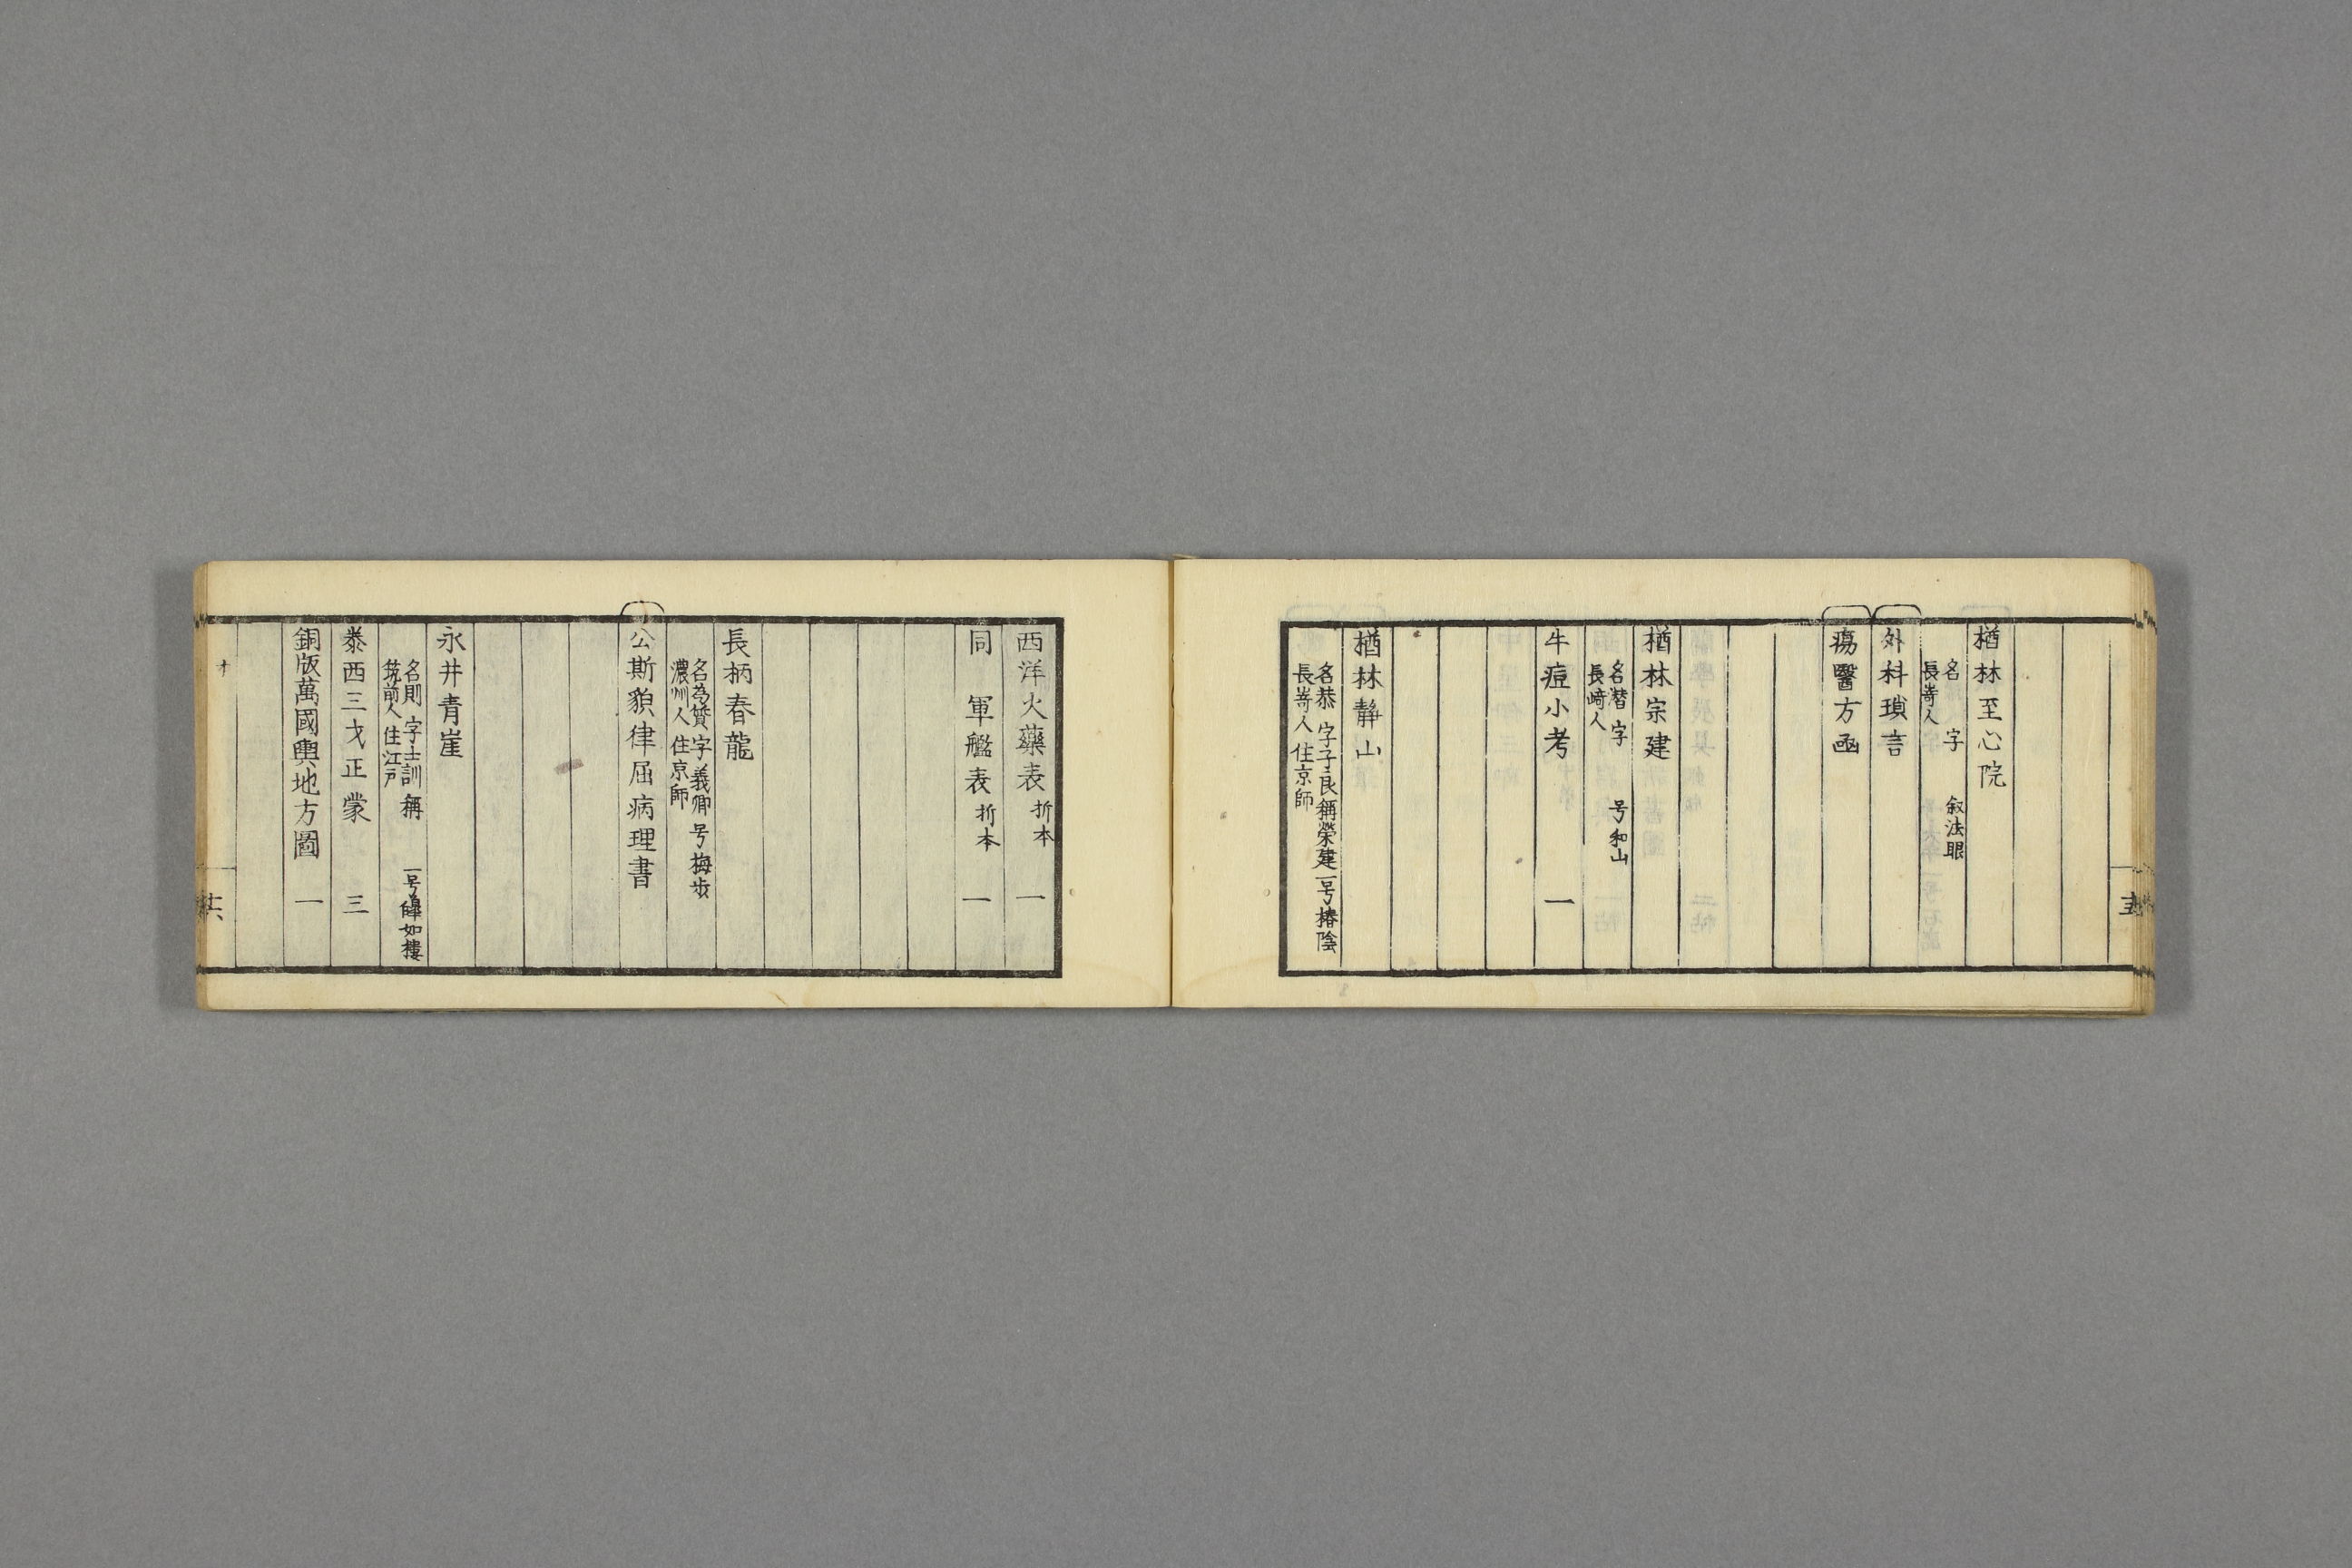 楢林至心院
名　字　叙法眼
長嵜人
外科瑣言
瘍醫方函
楢林宗建
名潜　字　号和山
長﨑人
牛痘小考　一
楢林静山
名恭　字子良　稱榮建　一号椿陰
長嵜人　住京師
西洋火藥表　折本　一
同　軍艦表　折本　一
長柄春龍
名為賛　字義卿　号梅坡
濃州人　住京師
公斯貌律屈病理書
永井青崖
名則　字士訓　稱　一号蟬如樓
筑前人　住江戸
泰西三才正蒙　三
銅版萬國輿地方圖　一
オ
十六